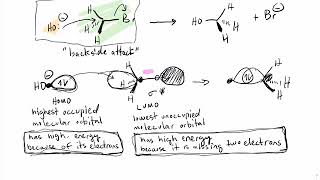 HO:⊖ H H H Br → HO H H H + Br⊖
"backside attack"
HO⊖ H H H σ* H H H
HOMO LUMO
highest occupied lowest unoccupied
molecular orbital molecular orbital
has high energy has high energy
because of its electrons because it is missing two electrons